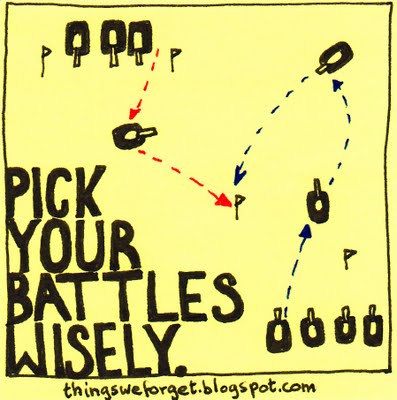 PICK
YOUR
BATTLES
WISELY.
thingsweforget.blogspot.com